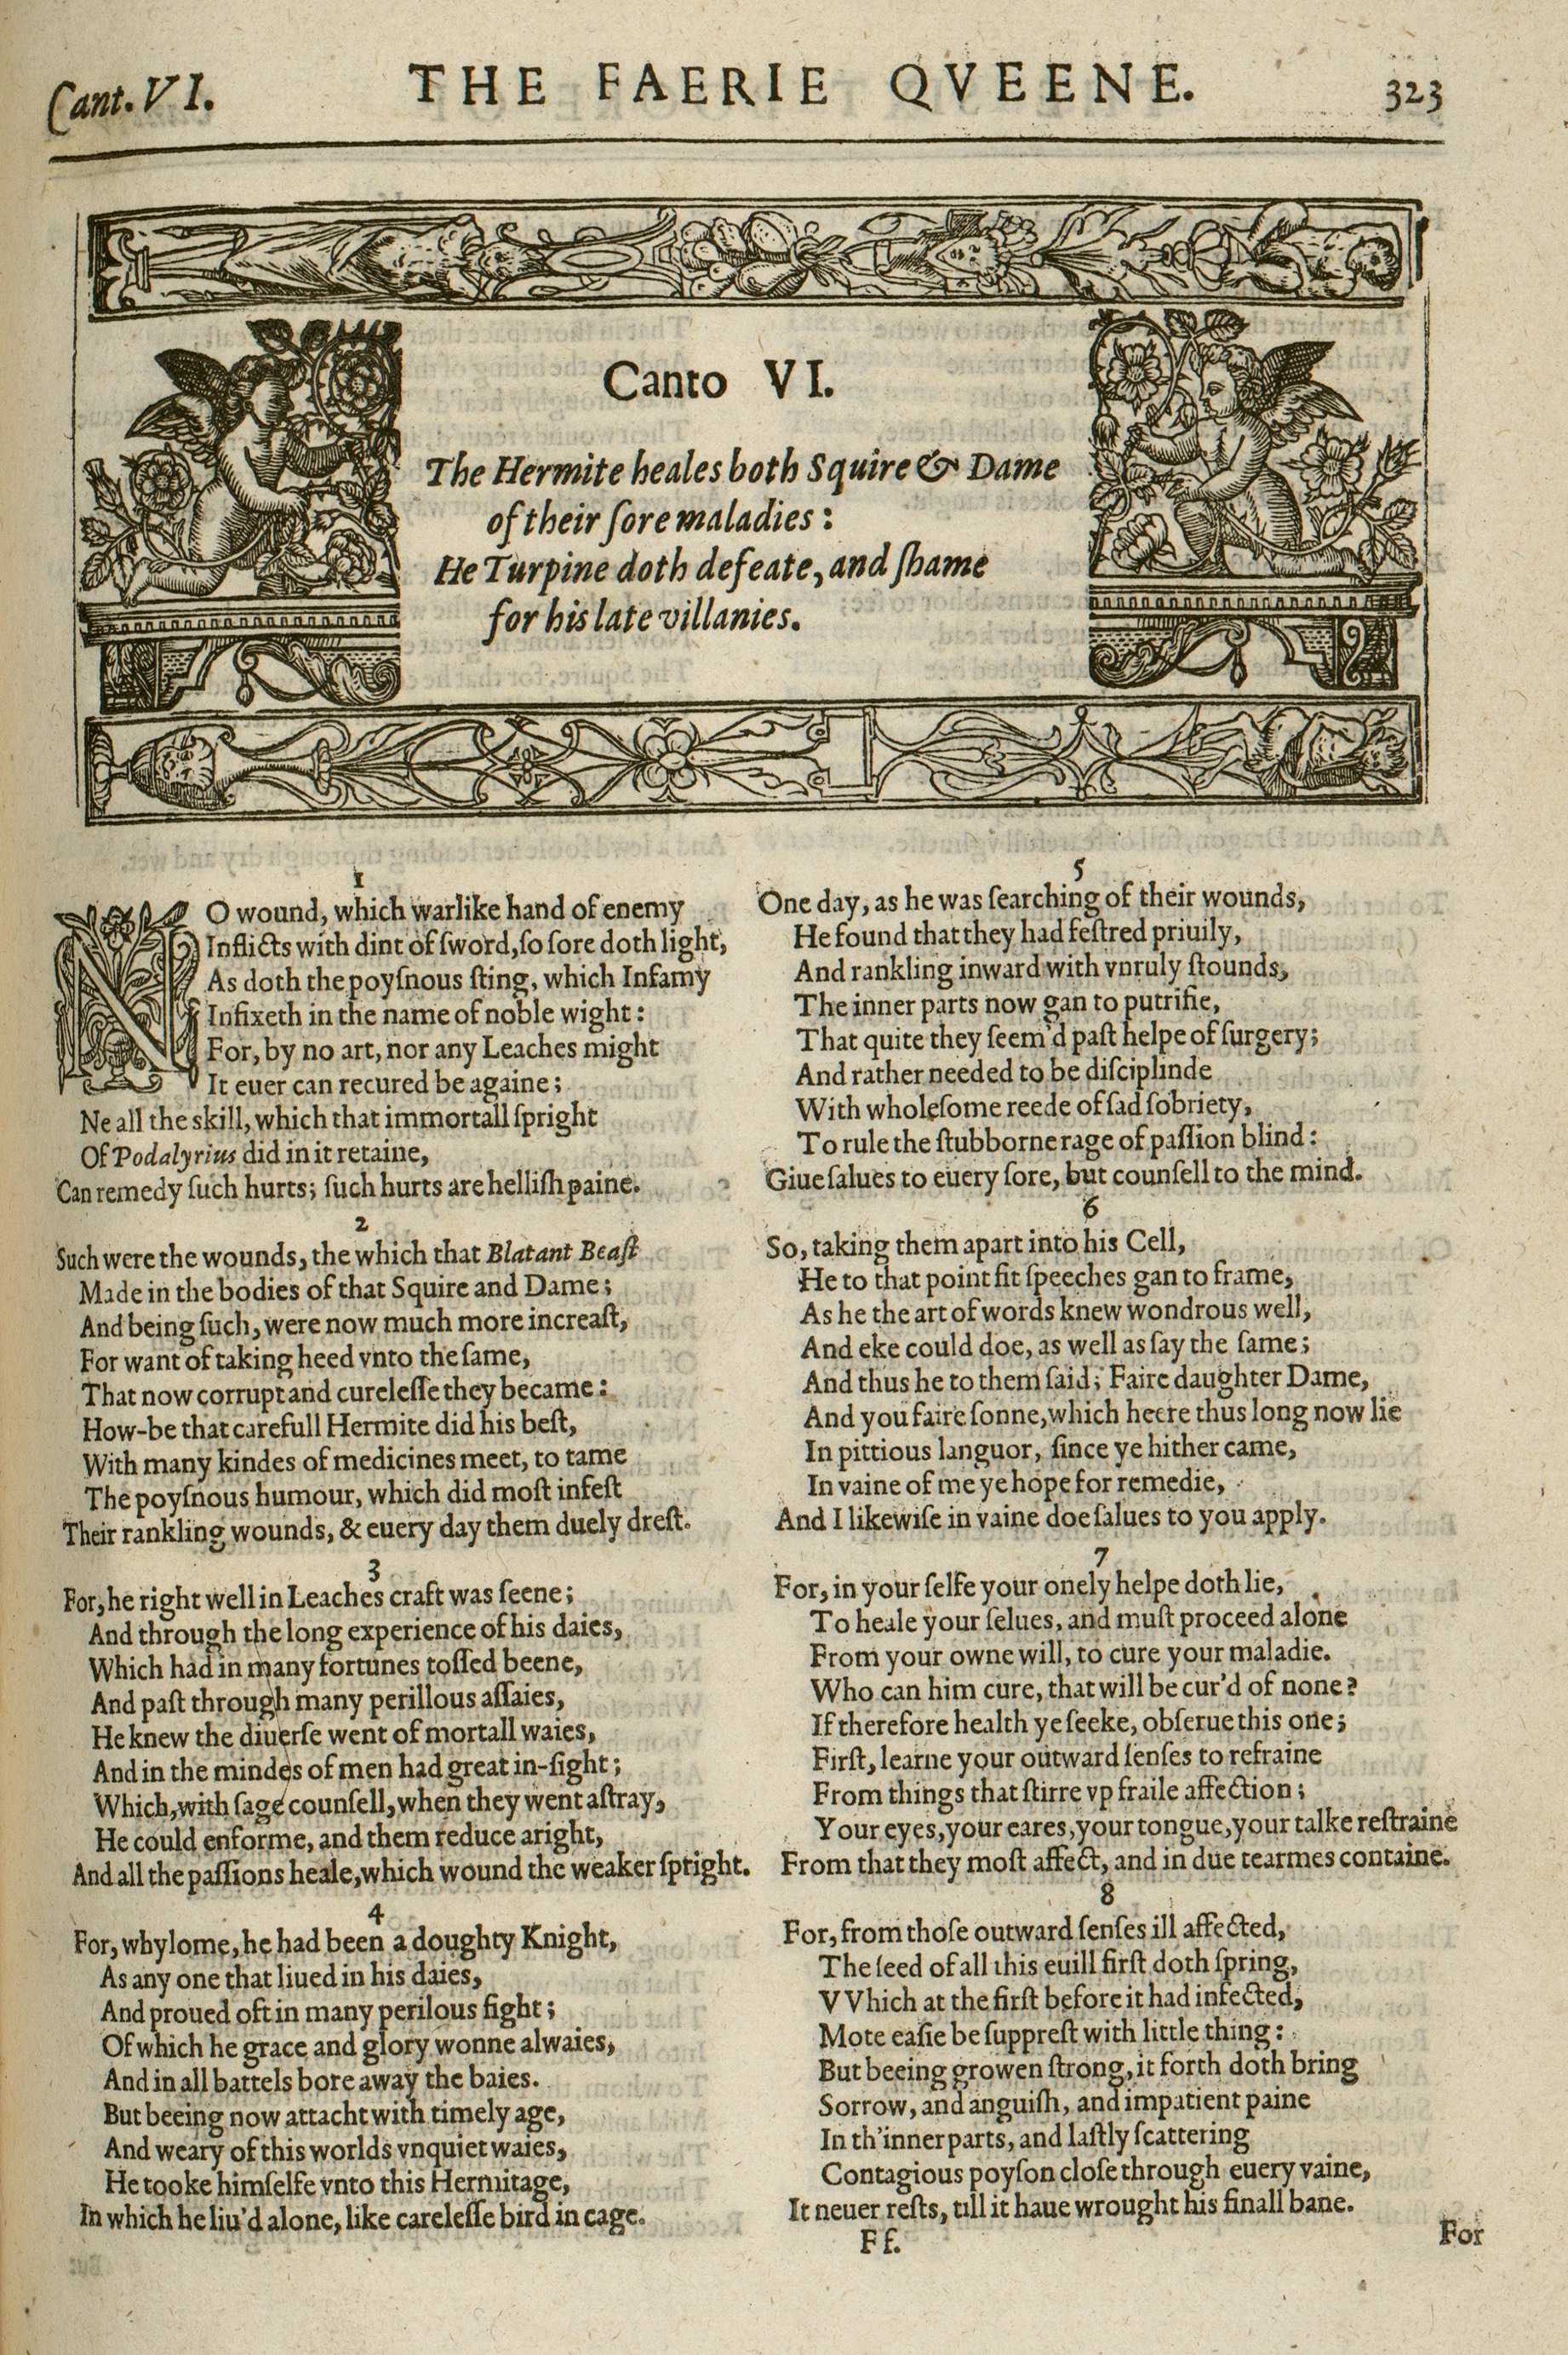 Cant. VI.
THE FAERIE QVEENE.
323
Canto VI.
The Hermite heales both Squire & Dame
of their ſore maladies:
He Turpine doth defeate, and ſhame
for his late villanies.
1
NO wound, which warlike hand of enemy
Inflicts with dint of ſword, ſo ſore doth light,
As doth the poyſnous ſting, which Infamy
Infixeth in the name of noble wight:
For, by no art, nor any Leaches might
It euer can recured be againe;
Ne all the skill, which that immortall ſpright
Of Podalyrius did in it retaine,
Can remedy ſuch hurts; ſuch hurts are helliſh paine.
2
Such were the wounds, the which that Blatant Beaſt
Made in the bodies of that Squire and Dame;
And being ſuch, were now much more increaſt,
For want of taking heed vnto the ſame,
That now corrupt and cureleſſe they became:
How-be that carefull Hermite did his beſt,
With many kindes of medicines meet, to tame
The poyſnous humour, which did moſt infeſt
Their rankling wounds, & euery day them duely dreſt.
3
For, he right well in Leaches craft was ſeene;
And through the long experience of his daies,
Which had in many fortunes toſſed beene,
And paſt through many perillous aſſaies,
He knew the diuerſe went of mortall waies,
And in the mindes of men had great in-ſight;
Which, with ſage counſell, when they went aſtray,
He could enforme, and them reduce aright,
And all the paſſions heale, which wound the weaker ſpright.
4
For, whylome, he had been a doughty Knight,
As any one that liued in his daies,
And proued oft in many perilous fight;
Of which he grace and glory wonne alwaies,
And in all battels bore away the baies.
But beeing now attacht with timely age,
And weary of this worlds vnquiet waies,
He tooke himſelfe vnto this Hermitage,
In which he liu'd alone, like careleſſe bird in cage.
5
One day, as he was ſearching of their wounds,
He found that they had feſtred priuily,
And rankling inward with vnruly ſtounds,
The inner parts now gan to putrifie,
That quite they ſeem'd paſt helpe of ſurgery;
And rather needed to be diſciplinde
With wholeſome reede of ſad ſobriety,
To rule the ſtubborne rage of paſſion blind:
Giue ſalues to euery ſore, but counſell to the mind.
6
So, taking them apart into his Cell,
He to that point fit ſpeeches gan to frame,
As he the art of words knew wondrous well,
And eke could doe, as well as ſay the ſame;
And thus he to them ſaid; Faire daughter Dame,
And you faire ſonne, which heere thus long now lie
In pittious languor, ſince ye hither came,
In vaine of me ye hope for remedie,
And I likewiſe in vaine doe ſalues to you apply.
7
For, in your ſelfe your onely helpe doth lie,
To heale your ſelues, and muſt proceed alone
From your owne will, to cure your maladie.
Who can him cure, that will be cur'd of none?
If therefore health ye ſeeke, obſerue this one;
Firſt, learne your outward ſenſes to refraine
From things that ſtirre vp fraile affection;
Your eyes, your eares, your tongue, your talke reſtraine
From that they moſt affect, and in due tearmes containe.
8
For, from thoſe outward ſenſes ill affected,
The ſeed of all this euill firſt doth ſpring,
VVhich at the firſt before it had infected,
Mote eaſie be ſuppreſt with little thing:
But beeing growen ſtrong, it forth doth bring
Sorrow, and anguiſh, and impatient paine
In th'inner parts, and laſtly ſcattering
Contagious poyſon cloſe through euery vaine,
It neuer reſts, till it haue wrought his finall bane.
Ff.
For